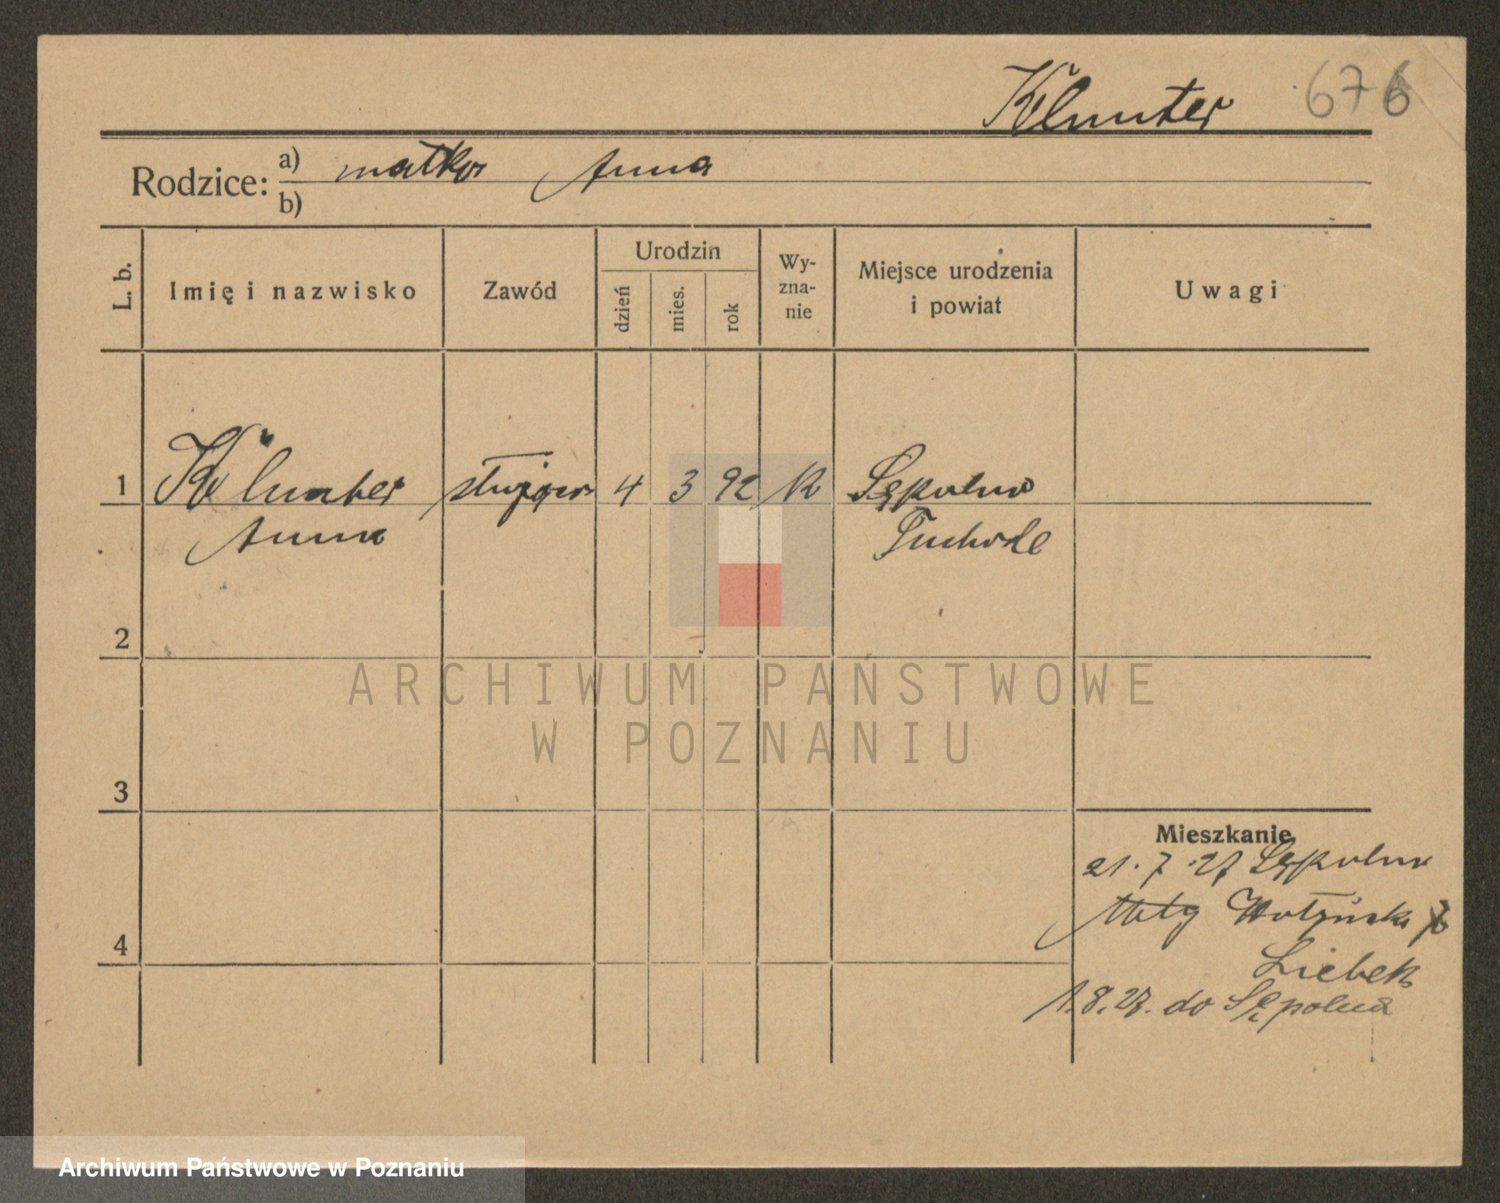 Klunter 676
Rodzice: a) matka Anna
b)
L. b.
Imię i nazwisko
Zawód
Urodzin
dzień
mies.
rok
Wy-
zna-
nie
Miejsce urodzenia
i powiat
Uwagi
1 Klunter służąca 4 3 92 k Sępolno
Anna Tuchole
2
3
4
ARCHIWUM PAŃSTWOWE
W POZNANIU
Mieszkanie
21.7.27 Sępolno
Liebek
1.8.27. do Sępolna
Archiwum Państwowe w Poznaniu